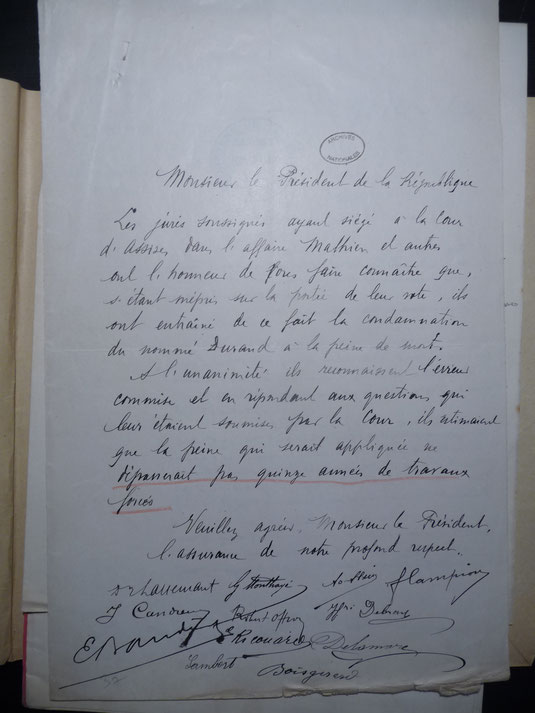 ARCHIVES
NATIONALES
Monsieur le Président de la République
Les jurés soussignés ayant siégé à la Cour
d'Assises dans l'affaire Mathien et autres
ont l'honneur de Vous faire connaître que,
s'étant mépris sur la portée de leur vote, ils
ont entraîné de ce fait la condamnation
du nommé Durand à la peine de mort.
A l'unanimité ils reconnaissent l'erreur
commise et en répondant aux questions qui
leur étaient soumises par la Cour, ils estimaient
que la peine qui serait appliquée ne
dépasserait pas quinze années de travaux
forcés
Veuillez agréer, Monsieur le Président,
l'assurance de notre profond respect.
Lampion
E Ricouard Delamare
Lambert Boisgerard